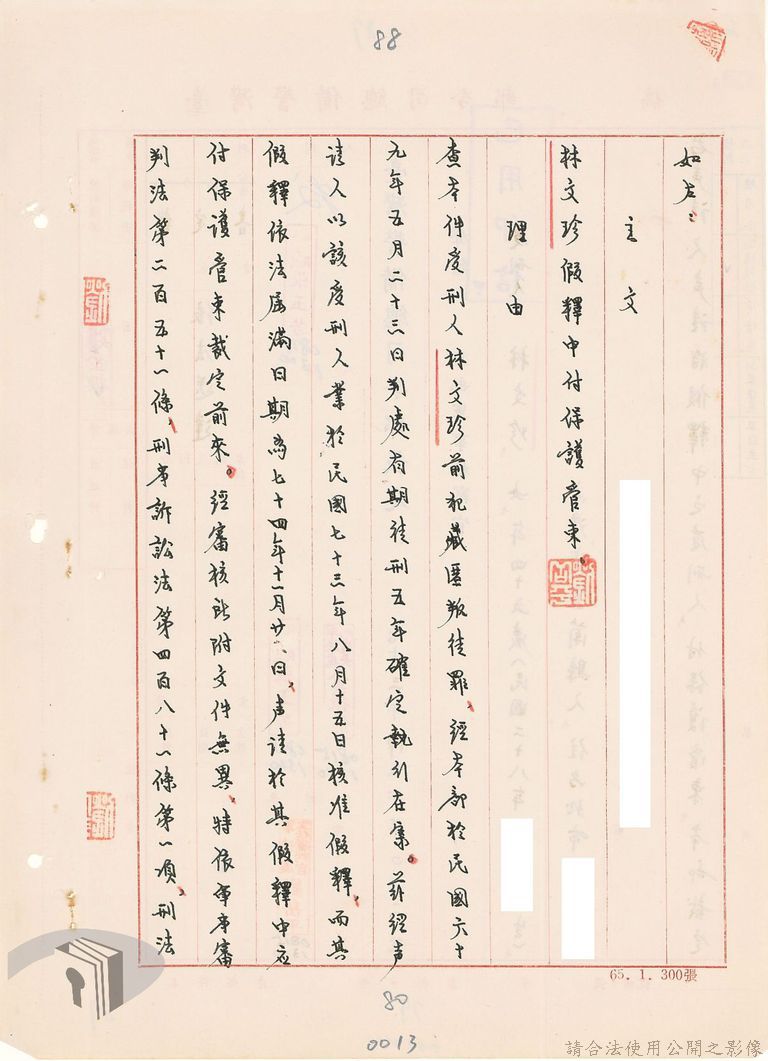 88
如左：
主文
林文珍假釋中付保護管束。
理由
查本件受刑人林文珍前犯藏匿叛徒罪，經本部於民國六十
九年五月二十三日判處有期徒刑五年確定執行在案。茲經聲
請人以該受刑人業於民國七十三年八月十五日核准假釋，而其
假釋依法屆滿日期為七十四年十一月廿八日，聲請於其假釋中應
付保護管束裁定前來。經審核所附文件無異，特依軍事審
判法第二百五十一條、刑事訴訟法第四百八十一條第一項、刑法
65. 1. 300張
80
0013
請合法使用公開之影像